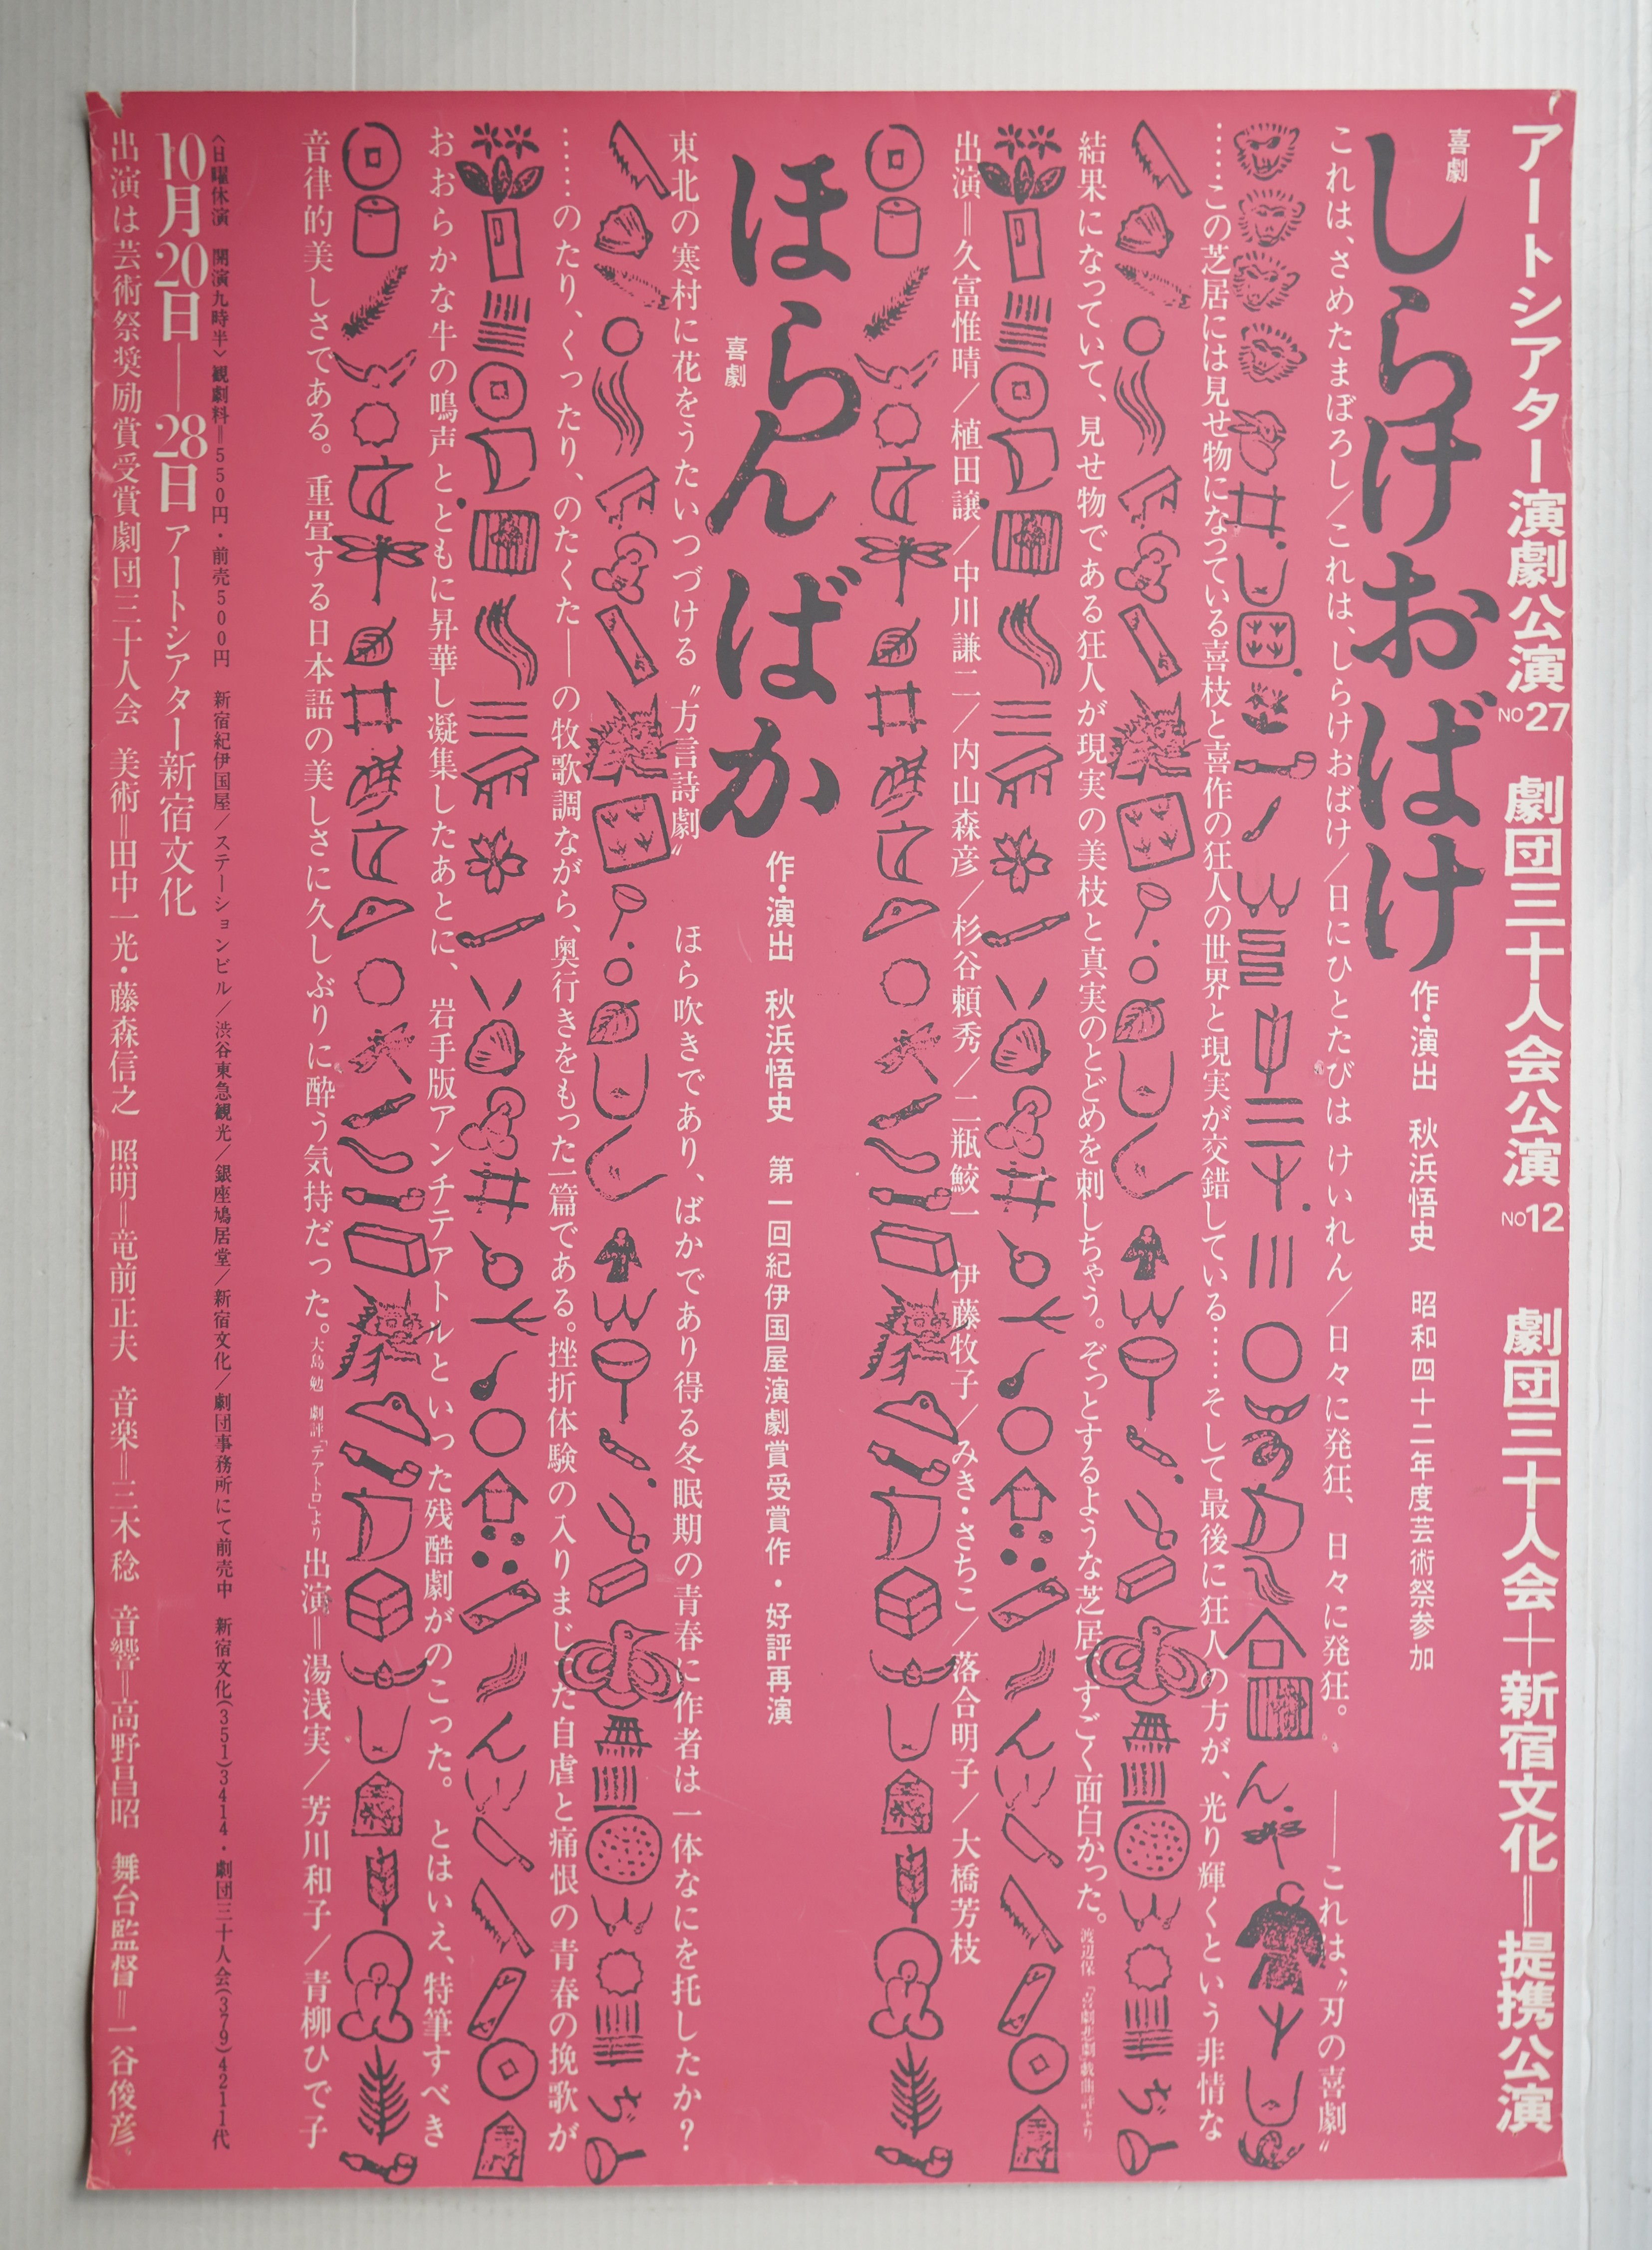 アートシアター演劇公演NO27 劇団三十人会公演NO12 劇団三十人会＋新宿文化＝提携公演
喜劇
しらけおばけ
作・演出 秋浜悟史 昭和四十二年度芸術祭参加
これは、さめたまぼろし／これは、しらけおばけ／日にひとたびは けいれん／日々に発狂、日々に発狂。 ――これは、〝刃の喜劇〟
……この芝居には見せ物になっている喜枝と喜作の狂人の世界と現実が交錯している……そして最後に狂人の方が、光り輝くという非情な
結果になっていて、見せ物である狂人が現実の美枝と真実のとどめを刺しちゃう。ぞっとするような芝居ですごく面白かった。渡辺保「喜劇悲劇・戯曲評」より
出演＝久富惟晴／植田譲／中川謙二／内山森彦／杉谷頼秀／二瓶鮫一 伊藤牧子／みき・さちこ／落合明子／大橋芳枝
ほらんばか
喜劇
作・演出 秋浜悟史 第一回紀伊国屋演劇賞受賞作・好評再演
東北の寒村に花をうたいつづける〝方言詩劇〟 ほら吹きであり、ばかであり得る冬眠期の青春に作者は一体なにを托したか？
……のたり、くったり、のたくた――の牧歌調ながら、奥行きをもった一篇である。挫折体験の入りまじった自虐と痛恨の青春の挽歌が
おおらかな牛の鳴声とともに昇華し凝集したあとに、岩手版アンチテアトルといった残酷劇がのこった。とはいえ、特筆すべき
音律的美しさである。重畳する日本語の美しさに久しぶりに酔う気持だった。大島勉 劇評「テアトロ」より 出演＝湯浅実／芳川和子／青柳ひで子
〈日曜休演 開演九時半〉観劇料＝550円・前売500円 新宿紀伊国屋／ステーションビル／渋谷東急観光／銀座鳩居堂／新宿文化／劇団事務所にて前売中 新宿文化(351)3414・劇団三十人会(379)4211代
10月20日――28日 アートシアター新宿文化
出演は芸術祭奨励賞受賞劇団三十人会 美術＝田中一光・藤森信之 照明＝竜前正夫 音楽＝三木稔 音響＝高野昌昭 舞台監督＝一谷俊彦。